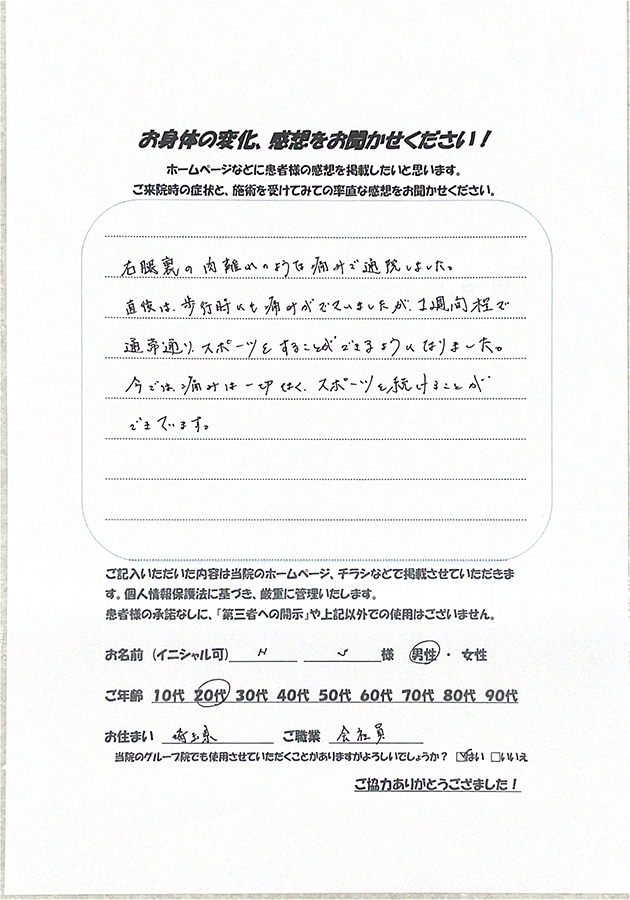 お身体の変化、感想をお聞かせください！
ホームページなどに患者様の感想を掲載したいと思います。
ご来院時の症状と、施術を受けてみての率直な感想をお聞かせください。
右腿裏の肉離れのような痛みで通院しました。
直後は、歩行時にも痛みがでていましたが、1週間程で
通常通り、スポーツをすることができるようになりました。
今では、痛みは一切なく、スポーツを続けることが
できています。
ご記入いただいた内容は当院のホームページ、チラシなどで掲載させていただきま
す。個人情報保護法に基づき、厳重に管理いたします。
患者様の承諾なしに、「第三者への開示」や上記以外での使用はございません。
お名前（イニシャル可） H 様 男性 ・ 女性
ご年齢 10代 20代 30代 40代 50代 60代 70代 80代 90代
お住まい 埼玉県 ご職業 会社員
当院のグループ院でも使用させていただくことがありますがよろしいでしょうか？ ☑はい □いいえ
ご協力ありがとうござました！